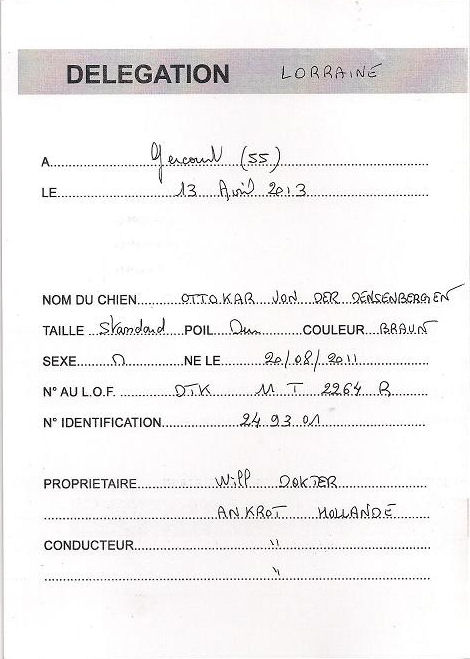 DELEGATION LORRAINE
A Gercourt (55)
LE 13 Avril 2013
NOM DU CHIEN OTTOKAR VON DER DENSENBERGEN
TAILLE Standard POIL Dur COULEUR BRAUN
SEXE NE LE 20/08/2011
N° AU L.O.F. DTK 11 T 2264 R
N° IDENTIFICATION 24 93 01
PROPRIETAIRE Will DOKTER
ANKROT HOLLANDE
CONDUCTEUR "
"